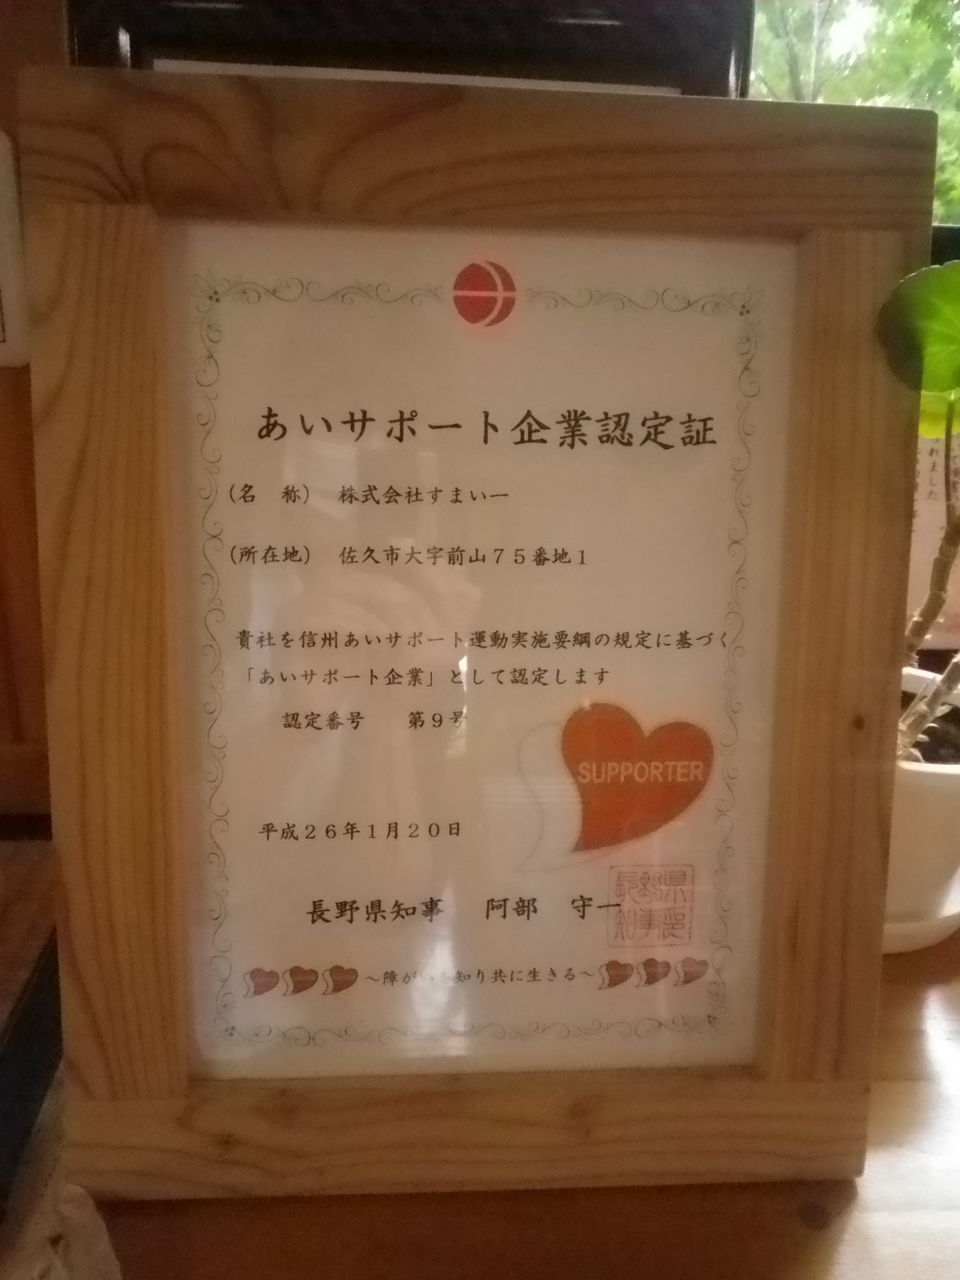 あいサポート企業認定証
(名　称)　株式会社すまいー
(所在地)　佐久市大字前山７５番地１
貴社を信州あいサポート運動実施要綱の規定に基づく
「あいサポート企業」として認定します
認定番号　　第９号
SUPPORTER
平成２６年１月２０日
長野県知事　阿部　守一
長野県知事
～障がいを知り共に生きる～
られました